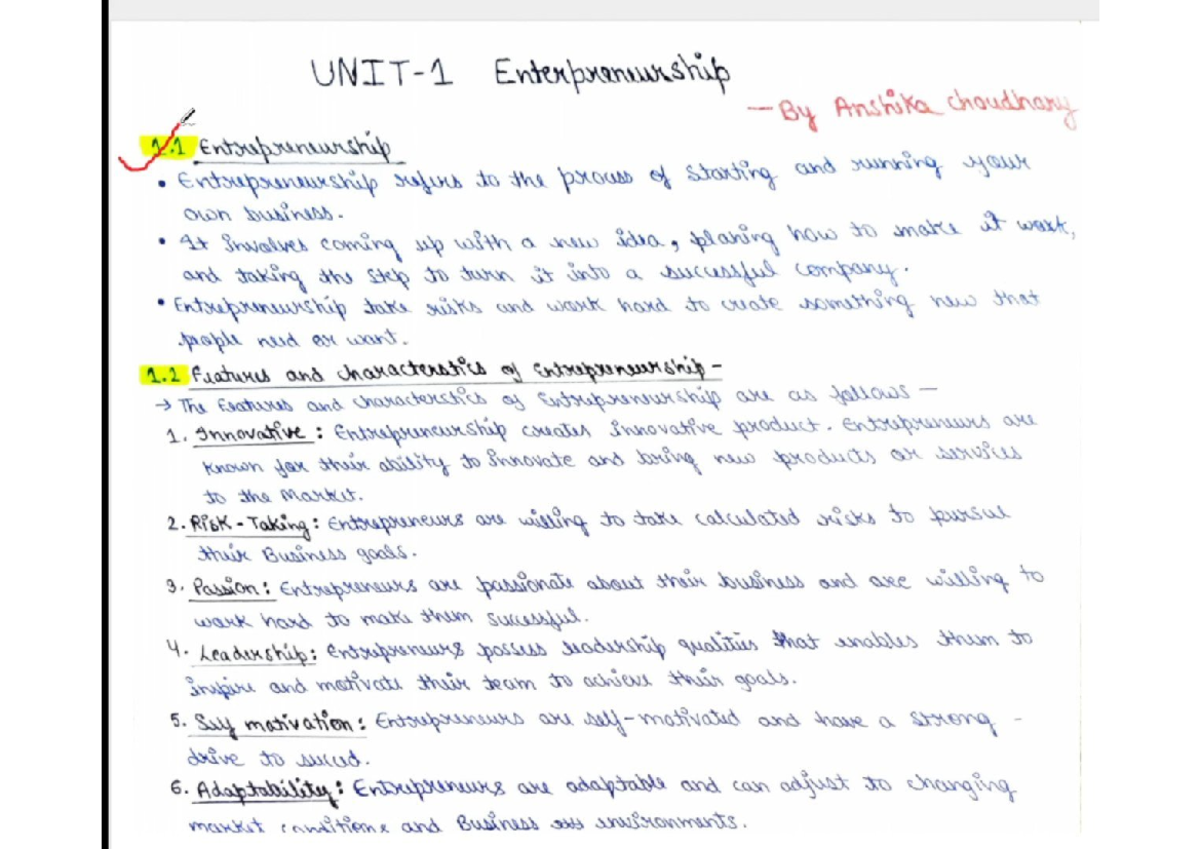 UNIT-1 Enterpreneurship
- By Anshika choudhary
1.1 Entrepreneurship
• Entrepreneurship refers to the process of starting and running your
own business.
• It involves coming up with a new idea, planing how to make it work,
and taking the step to turn it into a successful company.
• Entrepreneurship take risks and work hard to create something new that
people need or want.
1.2 Features and characterstics of Entrepreneurship -
→ The features and characterstics of Entrepreneurship are as follows -
1. Innovative : Entrepreneurship creates innovative product. Entrepreneurs are
known for their ability to innovate and bring new products or services
to the Market.
2. Risk - Taking : Entrepreneurs are willing to take calculated risks to pursue
their Business goals.
3. Passion : Entrepreneurs are passionate about their business and are willing to
work hard to make them successful.
4. Leadership : Entrepreneurs possess leadership qualities that enables them to
inspire and motivate their team to achieve their goals.
5. Self motivation : Entrepreneurs are self-motivated and have a strong -
drive to succed.
6. Adaptability : Entrepreneurs are adaptable and can adjust to changing
market conditions and Business environments.